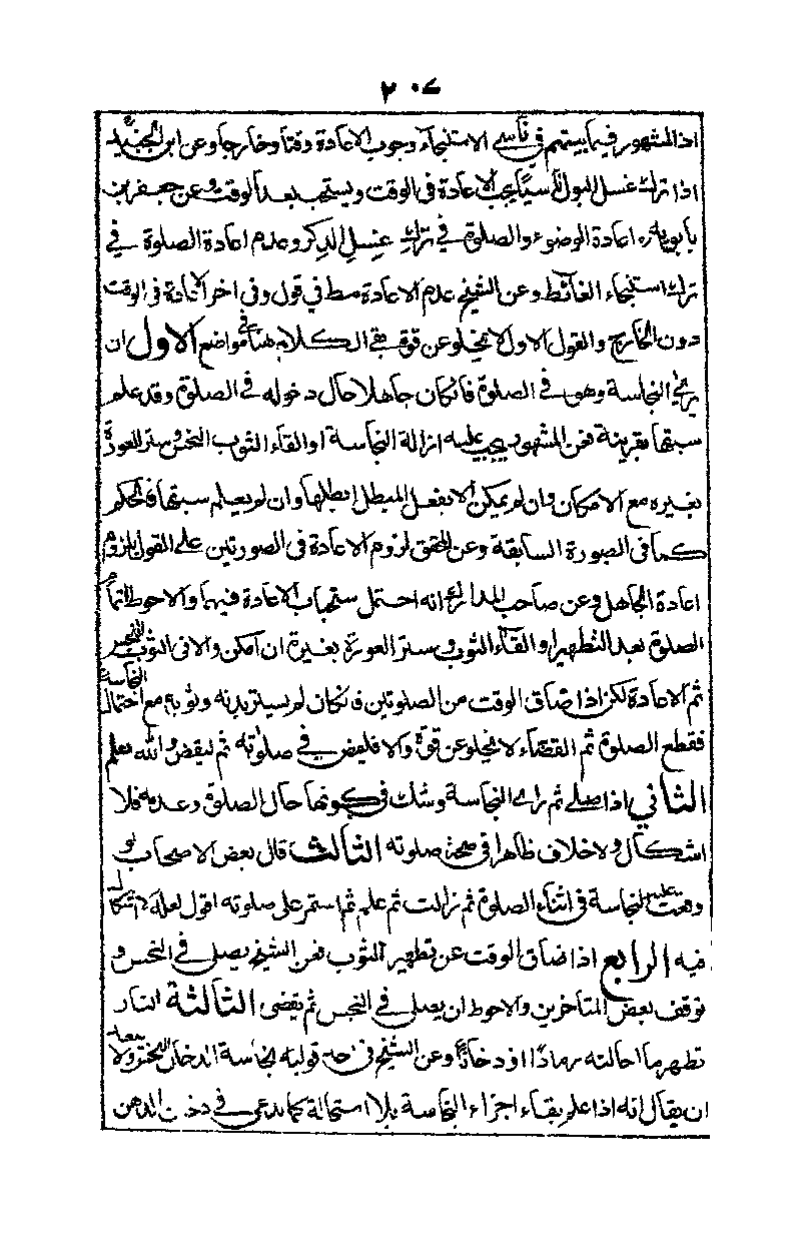 ٢٠٧
اذ المشهور فيما بينهم في ناسي الاستنجاء وجوب الاعادة وقتا وخارجا وعن ابن الجنيد
اذا ترك غسل البول ناسيا يجب الاعادة في الوقت ويستحب بعد الوقت وعن جعفر بن
بابويه ره اعادة الوضوء والصلوة في ترك غسل الذكر وعدم اعادة الصلوة في
ترك استنجاء الغائط وعن الشيخ عدم الاعادة مط في قول وفي اخر الاعادة في الوقت
دون الخارج والقول الاول لا يخلو عن قوة بقي الكلام هنا في مواضع الاول ان
يرى النجاسة وهو في الصلوة فان كان جاهلا حال دخوله في الصلوة وقد علم
سبقها بقرينة فمن المشهور يجب عليه ازالة النجاسة او القاء الثوب النجس وستر العورة
بغيره مع الامكان وان لم يمكن الا بفعل المبطل ابطلها وان لم يعلم سبقها فالحكم
كما في الصورة السابقة وعن المحقق لزوم الاعادة في الصورتين على القول بلزوم
اعادة الجاهل وعن صاحب المدارك انه احتمل ستحباب الاعادة فيهما والاحوط اتمام
الصلوة بعد التطهير او القاء الثوب وستر العورة بغيره ان امكن والا في الثوب النجس
ثم الاعادة لكن اذا ضاق الوقت من الصلوتين فان كان لم يستر بدنه وثوبه مع احتمال النجاسة
فقطع الصلوة ثم القضاء لا يخلو عن قوة والا فليمض في صلوته ثم ليقض والله يعلم
الثاني اذا صلى ثم راى النجاسة وشك في كونها حال الصلوة وعدمه فلا
اشكال ولا خلاف ظاهرا في صحة صلوته الثالث قال بعض الاصحاب لو
وقعت عليه النجاسة في اثناء الصلوة ثم زالت ثم علم ثم استمر على صلوته اقول لعله لا اشكال
فيه الرابع اذا ضاق الوقت عن تطهير الثوب فمن الشيخ يصلى في النجس و
توقف بعض المتاخرين والاحوط ان يصلى في النجس ثم يقضى الثالثة النار
تطهر ما احالته رمادا او دخانا وعن الشيخ في احد قوليه نجاسة الدخان النجس ولا بعد
ان يقال انه اذا علم بقاء اجزاء النجاسة بلا استحالة كما يدعى في دخان الدهن